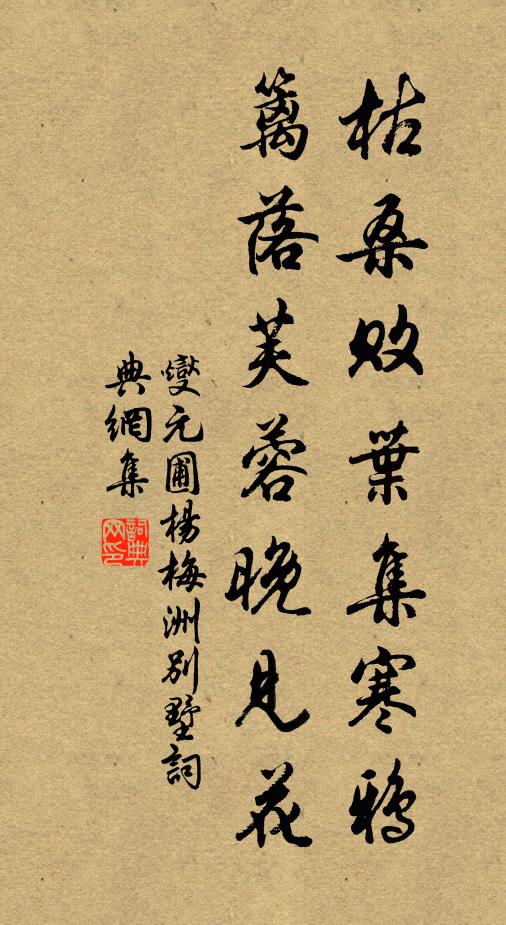 枯桑敗葉集寒鴉
籬落芙蓉晚見花
燮元圃楊梅洲別墅詞
典網集
詞典網印